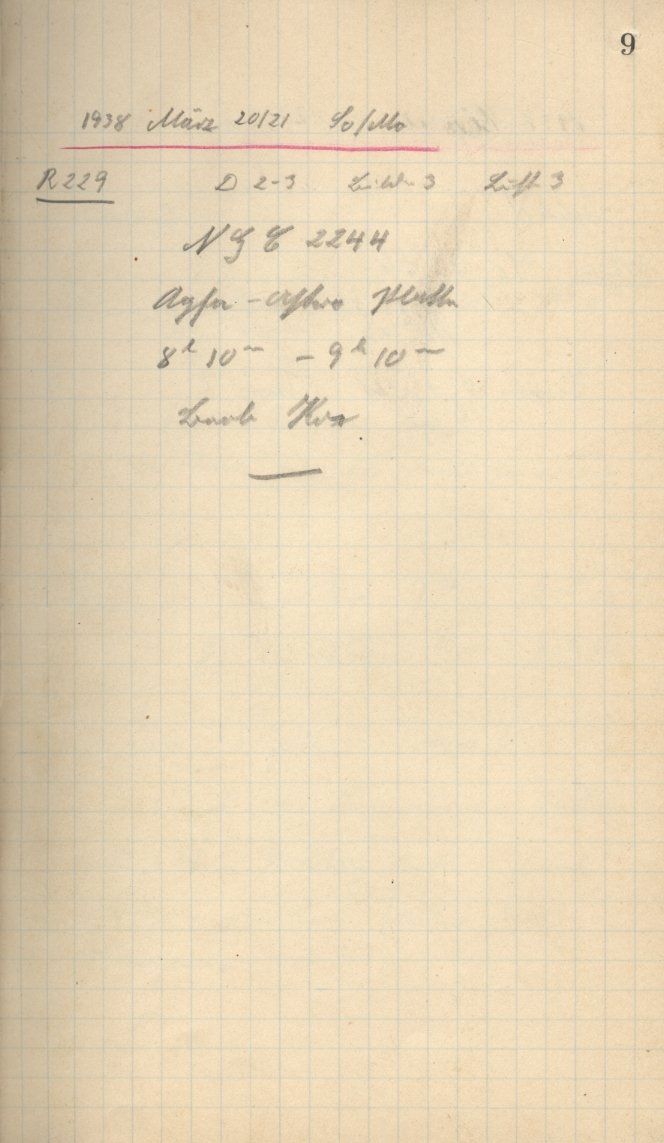 9
1938 März 20/21 So/Mo
R 229 D 2-3 Bild 3 Luft 3
N G C 2244
Agfa - Astro Platte
8h 10m - 9h 10m